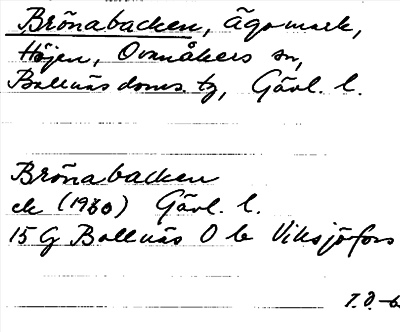 Brönabacken, Ägomark,
Höjen, Ovanåkers sn,
Bollnäs doms. tg, Gävl. l.
Brönabacken
ek (1960) Gävl. l.
15 G Bollnäs O b Viksjöfors